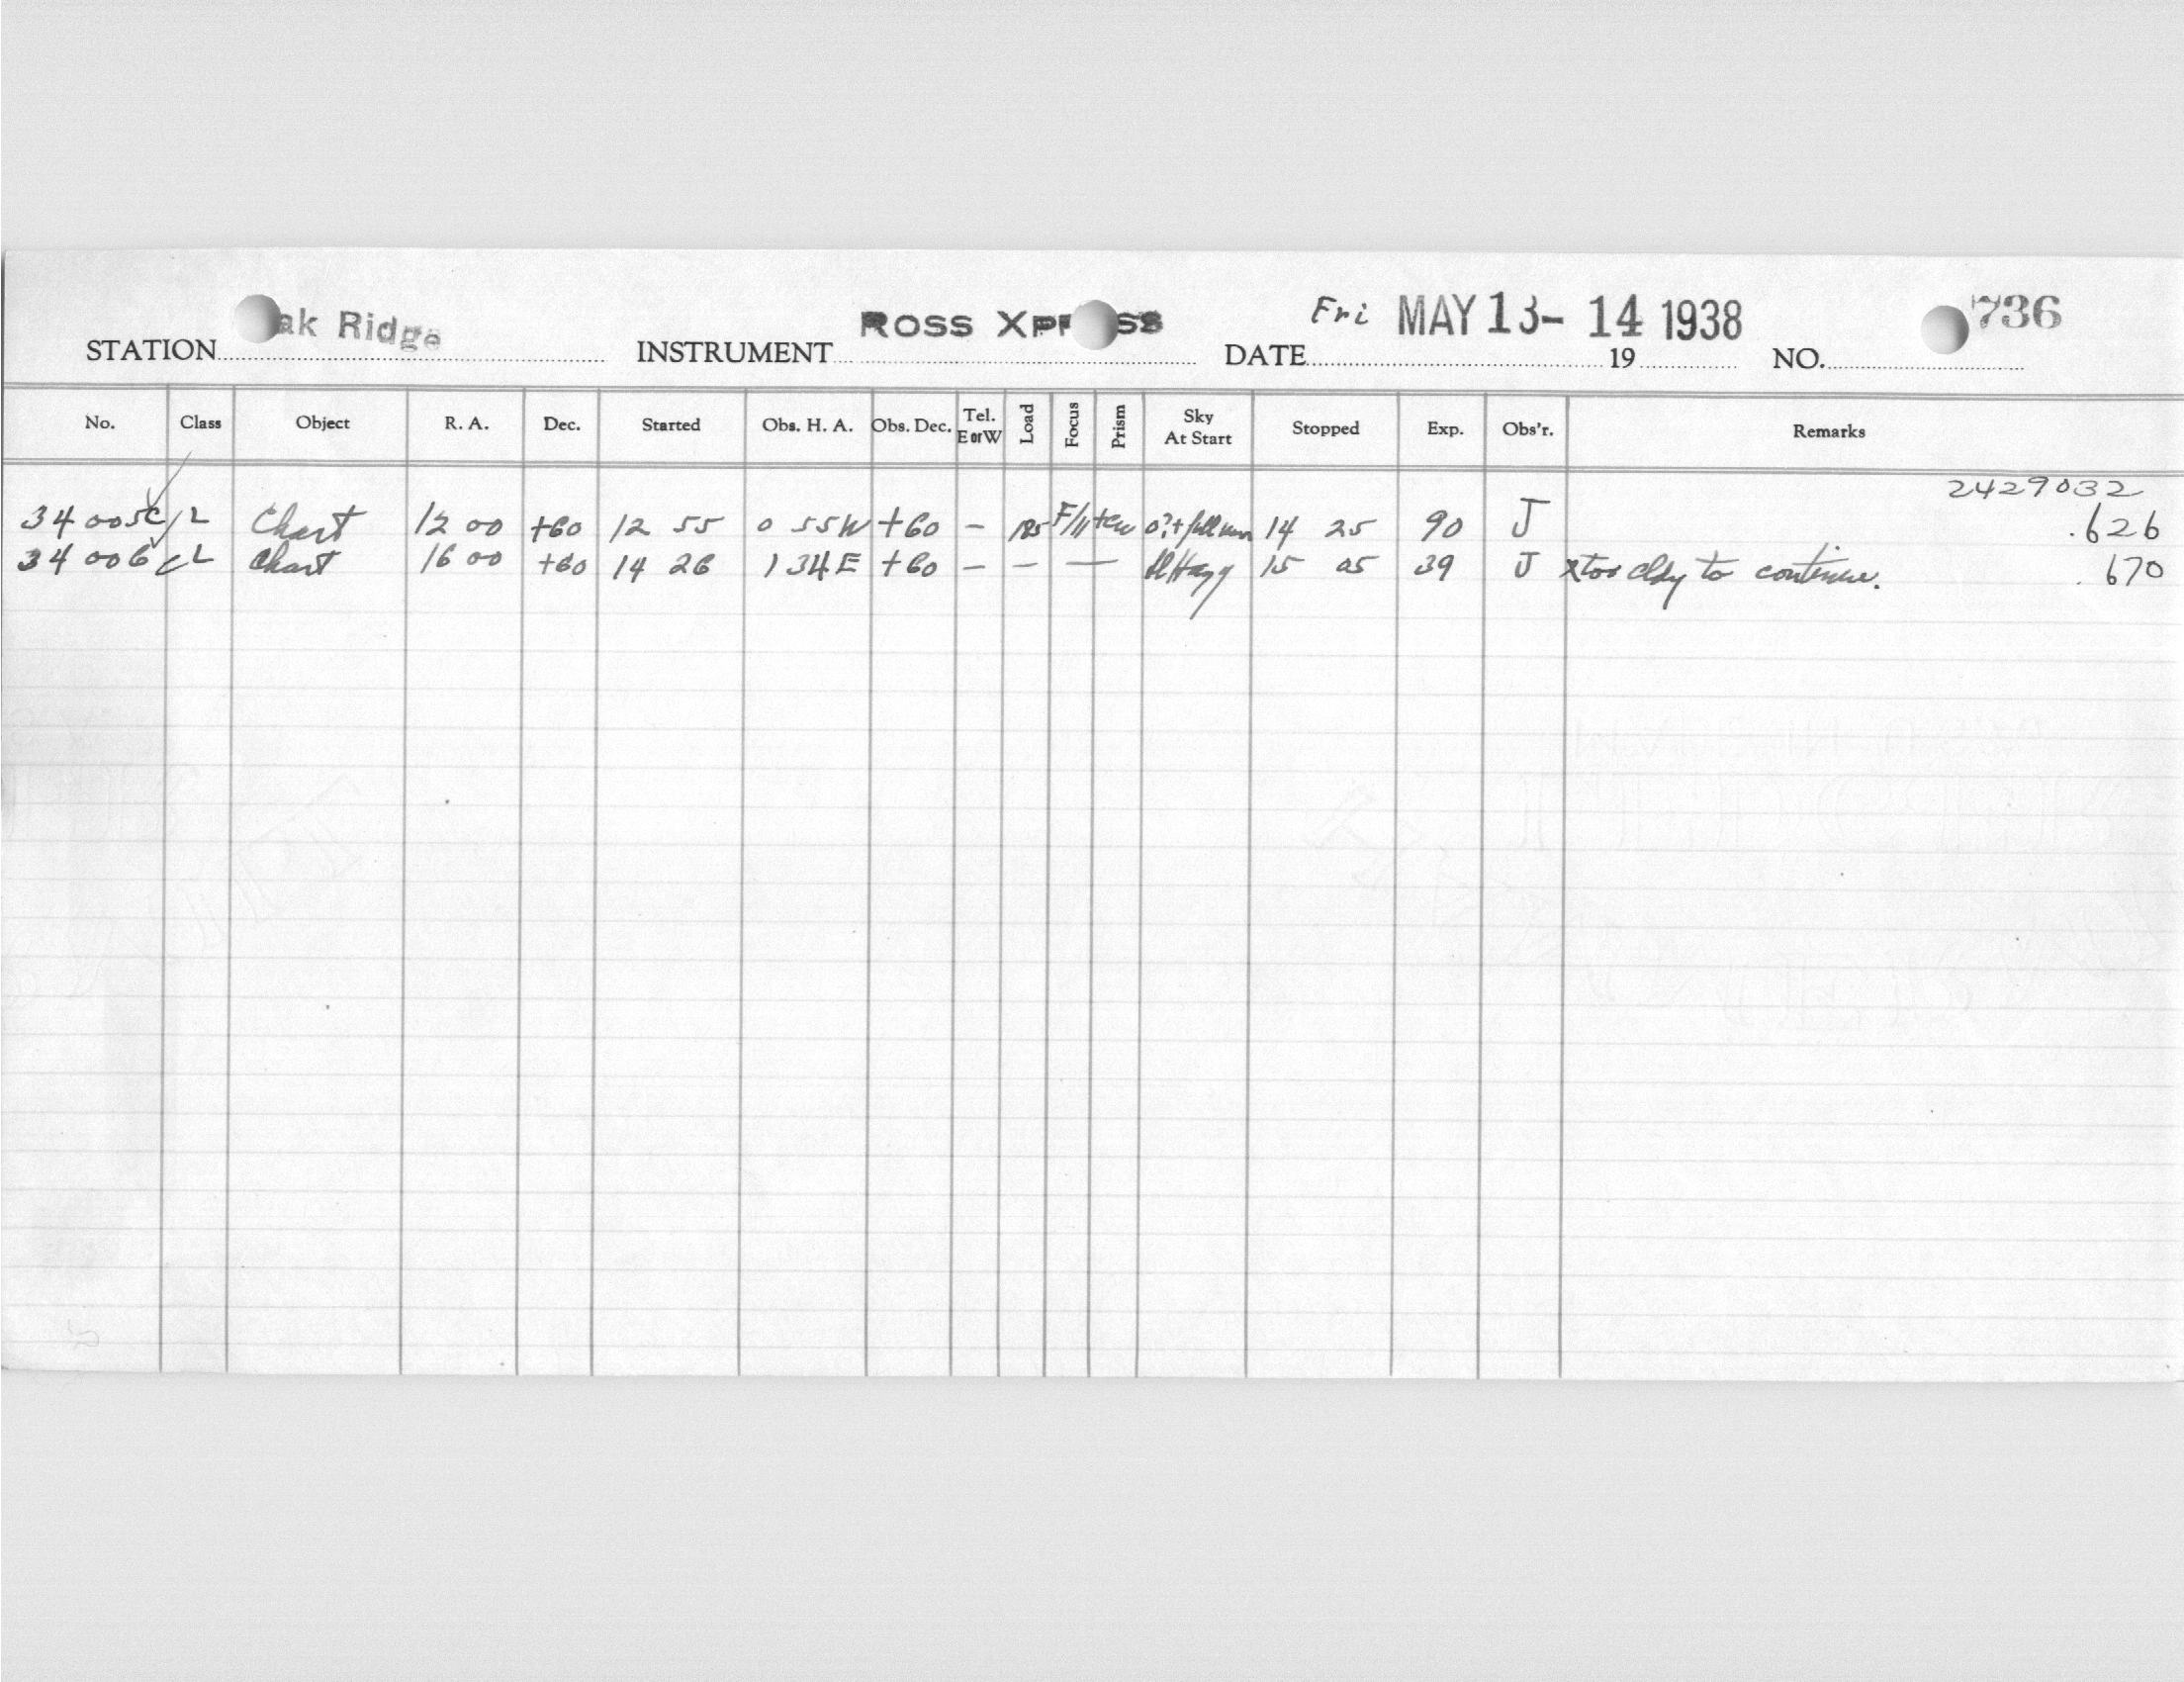 ak Ridge ROSS XPR SS Fri MAY 13- 14 1938 736
STATION INSTRUMENT DATE 19 NO.
No. Class Object R. A. Dec. Started Obs. H. A. Obs. Dec. Tel. E or W Load Focus Prism Sky At Start Stopped Exp. Obs'r. Remarks
2429032
34 005 CL Chart 12 00 +60 12 55 0 55W +60 - F/11 14 25 90 J .626
34 006 CL Chart 16 00 +60 14 26 1 34E +60 - - — Hazy 15 05 39 J x too cldy to continue. .670